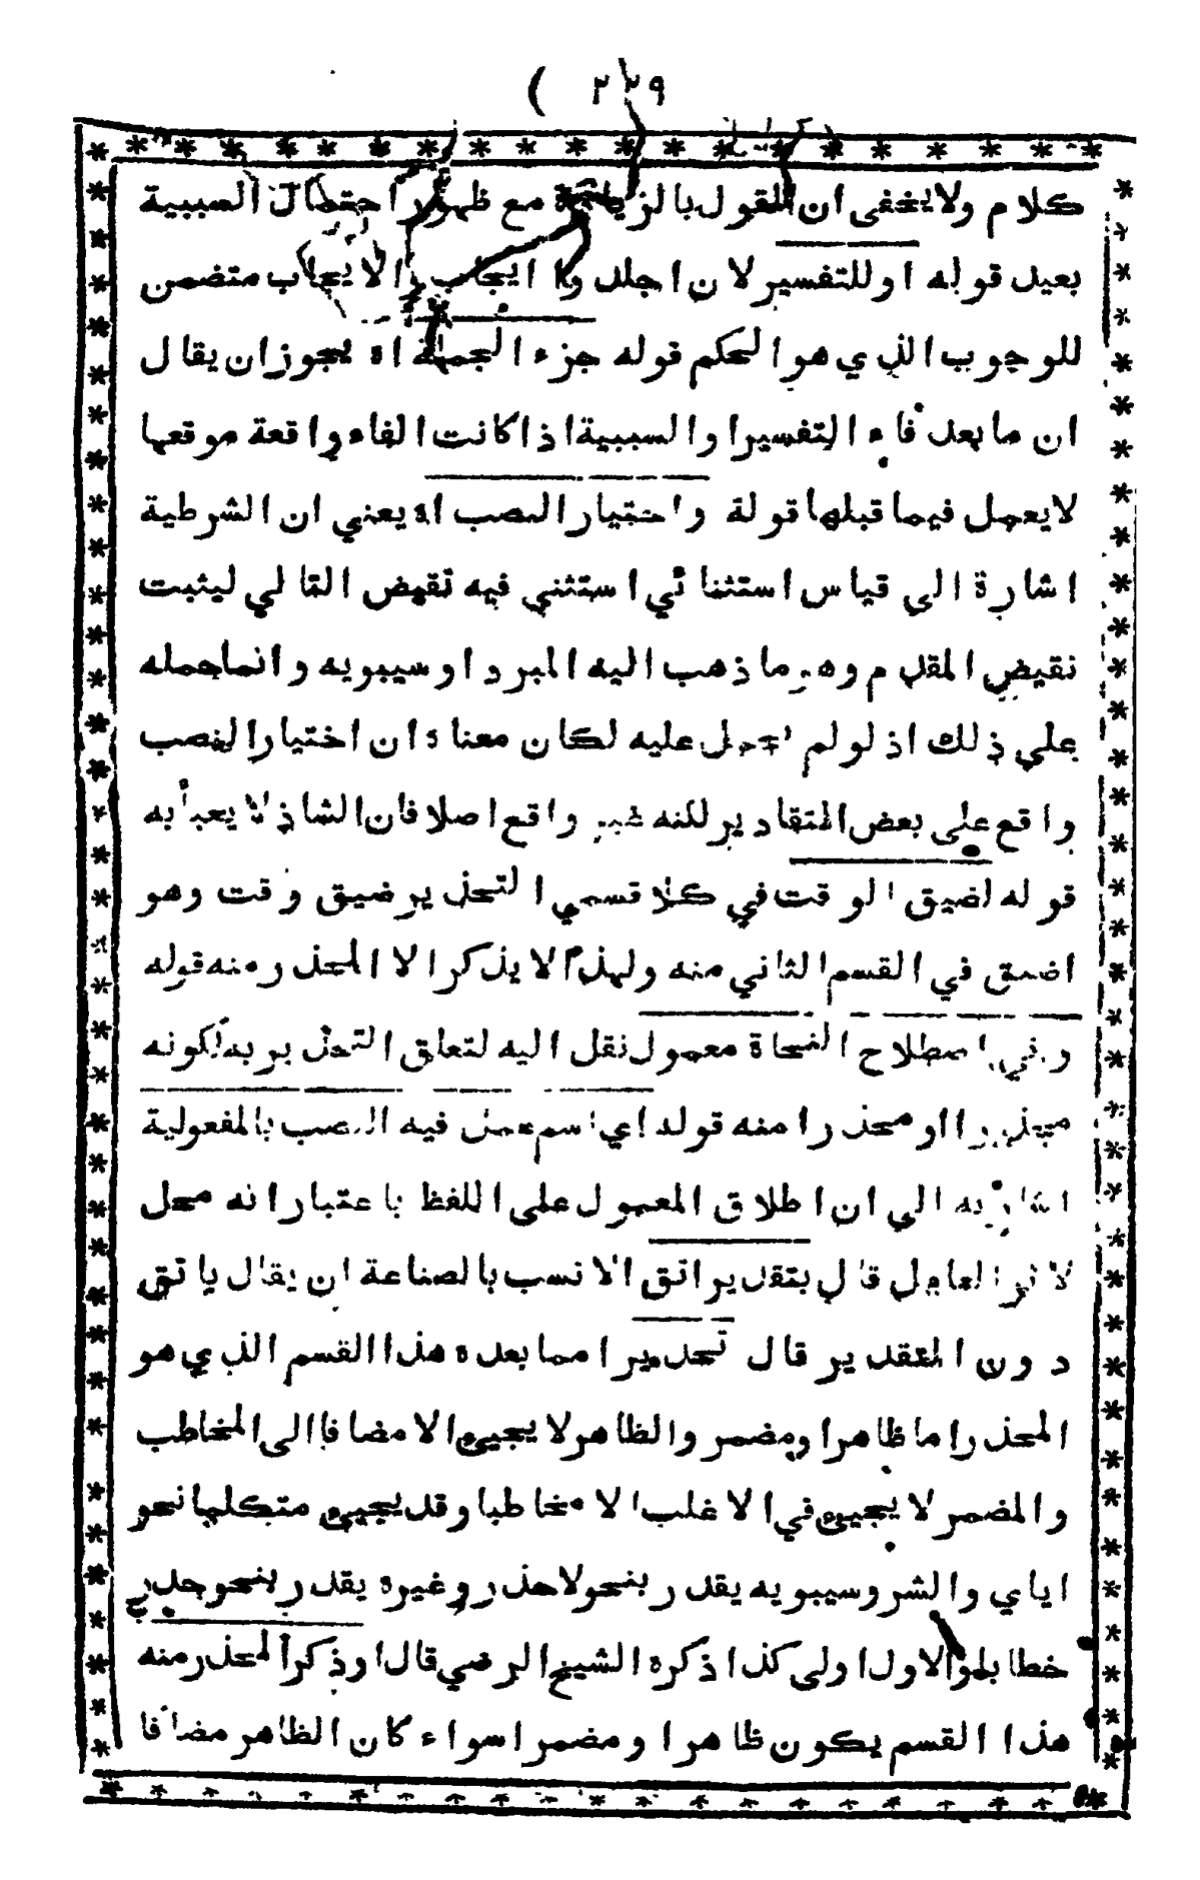 ( ٢٢٩
كلام ولا يخفى ان القول بالزيادة مع ظهور احتمال السببية
بعيد قوله او للتفسير لان اجلدوا ايجاب والايجاب متضمن
للوجوب الذي هو الحكم قوله جزء الجملة اه يجوز ان يقال
ان ما بعد فاء التفسير او السببية اذا كانت الفاء واقعة موقعها
لا يعمل فيما قبلها قولة واختيار النصب اه يعني ان الشرطية
اشارة الى قياس استثنائي استثنى فيه نقيض التالي ليثبت
نقيض المقدم وهو ما ذهب اليه المبرد او سيبويه وانما حمله
علي ذلك اذ لو لم يحمل عليه لكان معناه ان اختيار النصب
واقع على بعض التقادير لكنه غير واقع اصلا فان الشاذ لا يعبأ به
قوله لضيق الوقت في كلا قسمي التحذير ضيق وقت وهو
اضيق في القسم الثاني منه ولهذا لا يذكر الا المحذر منه قوله
وفي اصطلاح النحاة معمول نقل اليه لتعلق التحذير به لكونه
محذرا او محذرا منه قوله اي اسم عمل فيه النصب بالمفعولية
اشار به الى ان اطلاق المعمول على اللفظ باعتبار انه محل
لاثر العامل قال بتقدير اتق الانسب بالصناعة ان يقال باتق
دون التقدير قال تحذيرا مما بعده هذا القسم الذي هو
المحذر اما ظاهرا ومضمر والظاهر لا يجيىء الا مضافا الى المخاطب
والمضمر لا يجيىء في الاغلب الا مخاطبا وقد يجيىء متكلما نحو
اياي والشر وسيبويه يقدر بنحو لاحذر وغيره يقدر بنحو حذر
خطابا والاول اولى كذا ذكره الشيخ الرضي قال اوذكر المحذر منه
هذا القسم يكون ظاهرا ومضمرا سواء كان الظاهر مضافا